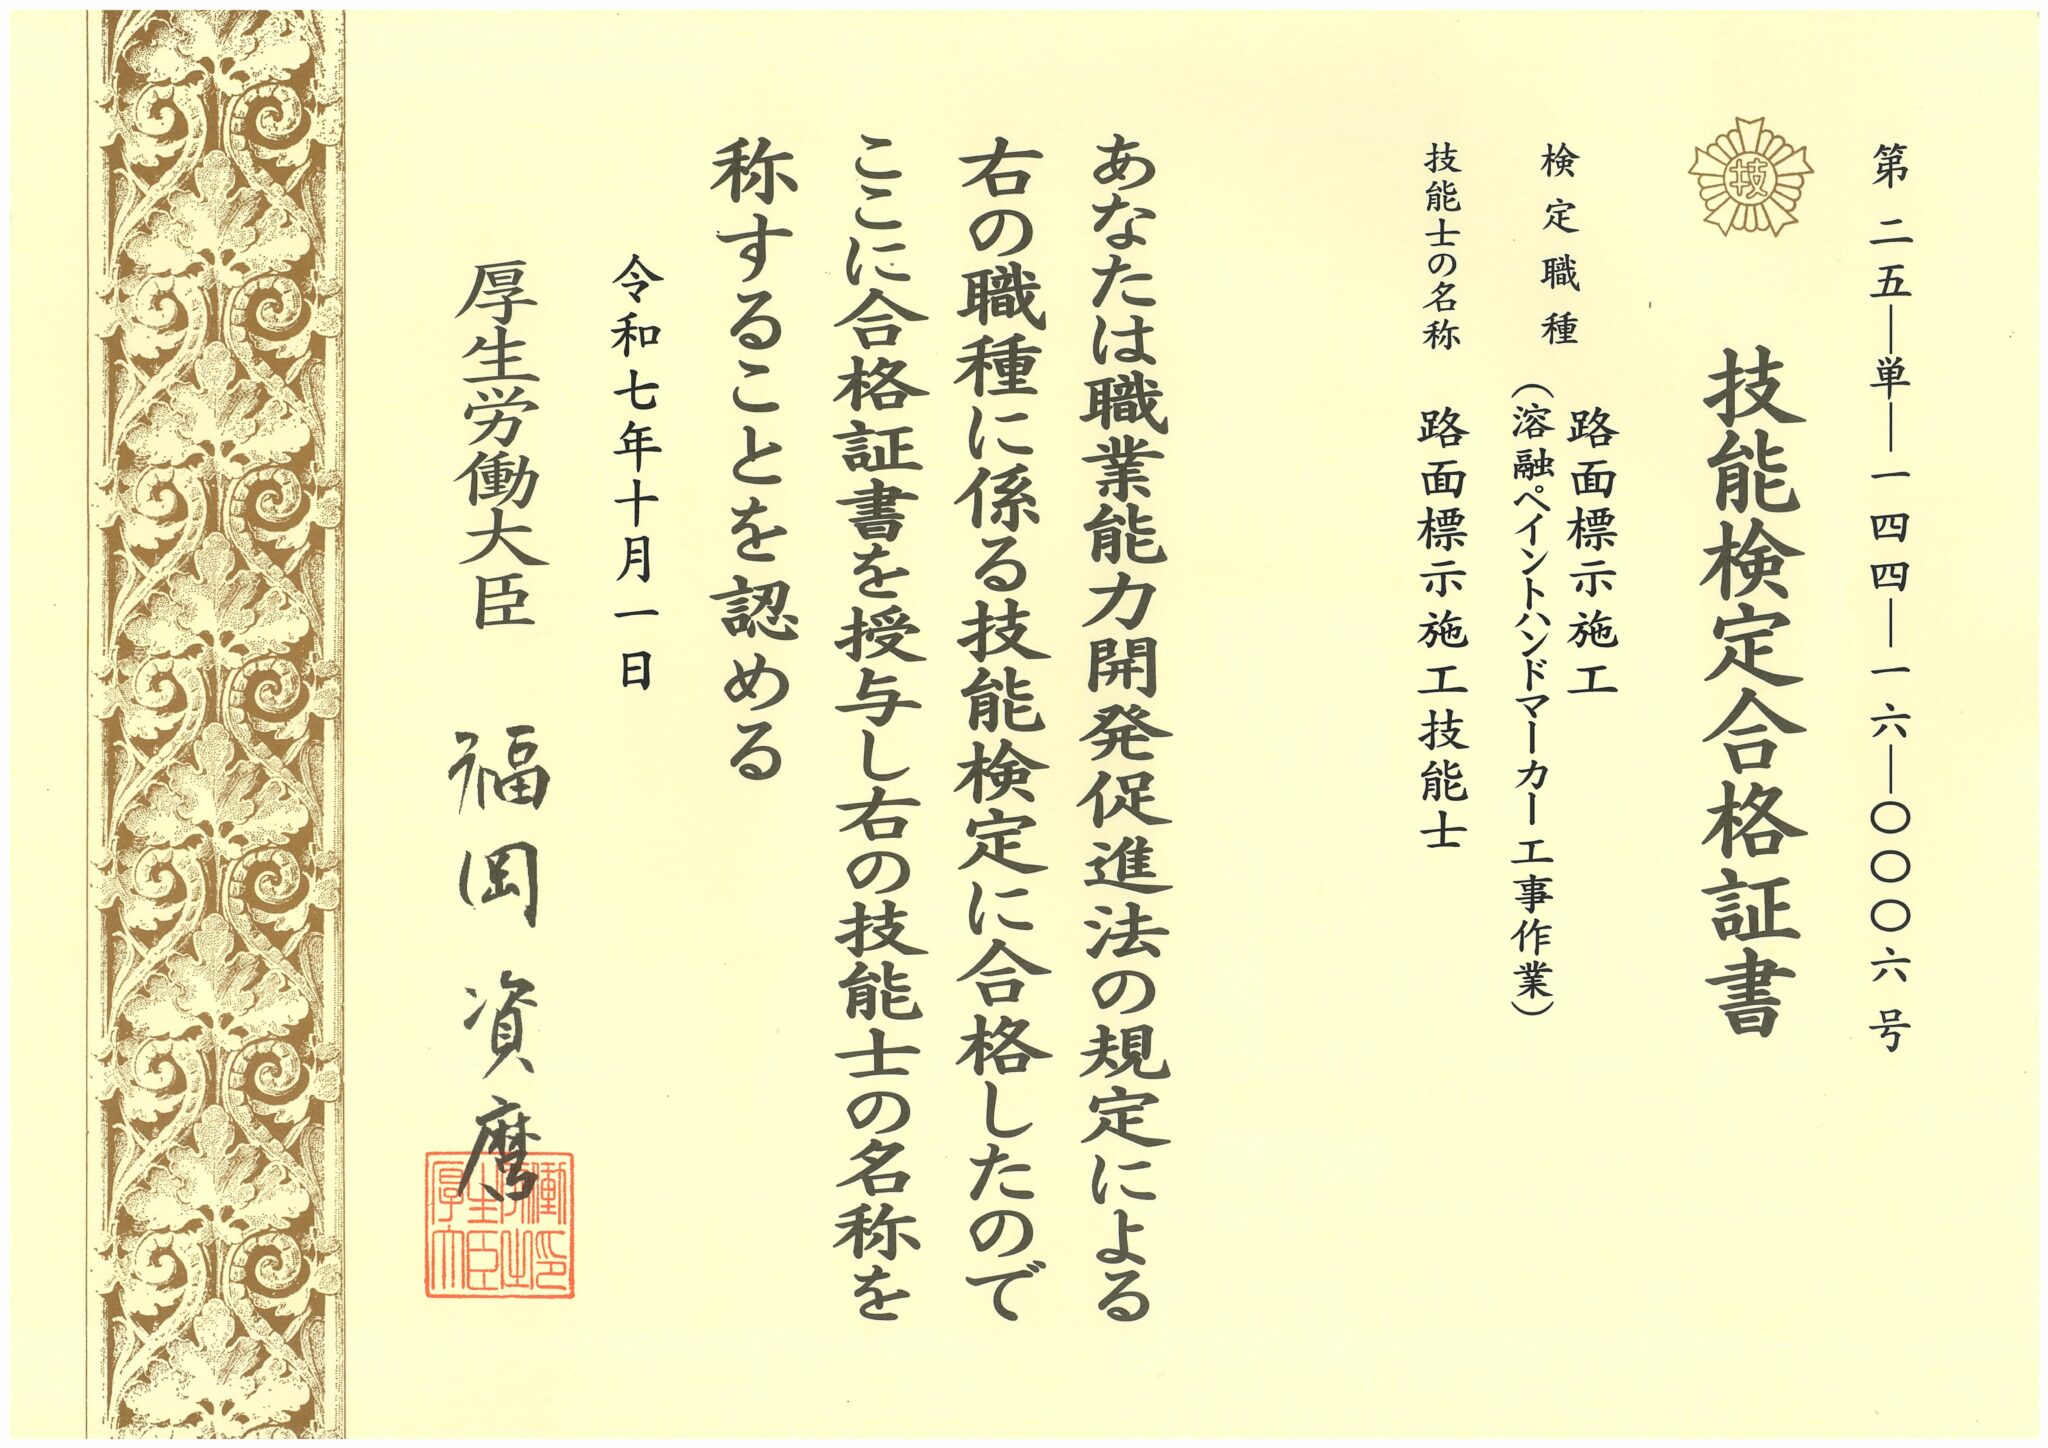 第二五―単―一四四―一六―〇〇〇六号
技
技能検定合格証書
検定職種 路面標示施工
(溶融ペイントハンドマーカー工事作業)
技能士の名称 路面標示施工技能士
あなたは職業能力開発促進法の規定による
右の職種に係る技能検定に合格したので
ここに合格証書を授与し右の技能士の名称を
称することを認める
令和七年十月一日
厚生労働大臣 福岡資麿